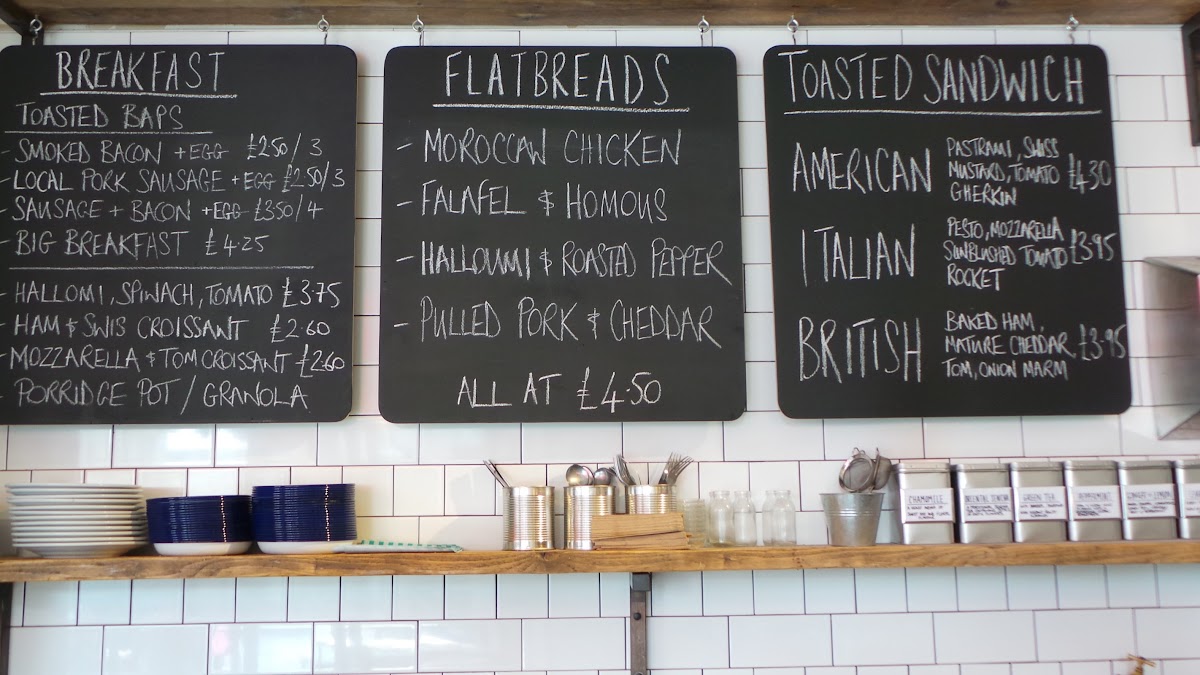 BREAKFAST
TOASTED BAPS
- SMOKED BACON + EGG £2.50 / 3
- LOCAL PORK SAUSAGE + EGG £2.50/3
- SAUSAGE + BACON + EGG £3.50/4
- BIG BREAKFAST £4.25
- HALLOMI, SPINACH, TOMATO £3.75
- HAM & SWIS CROISSANT £2.60
- MOZZARELLA & TOM CROISSANT £2.60
- PORRIDGE POT / GRANOLA
FLATBREADS
- MOROCCAN CHICKEN
- FALAFEL & HOMOUS
- HALLOUMI & ROASTED PEPPER
- PULLED PORK & CHEDDAR
ALL AT £4.50
TOASTED SANDWICH
AMERICAN
PASTRAMI, SWISS
MUSTARD, TOMATO £4.30
GHERKIN
ITALIAN
PESTO, MOZZARELLA
SUNBLUSHED TOMATO £3.95
ROCKET
BRITISH
BAKED HAM,
MATURE CHEDDAR, £3.95
TOM, ONION MARM
CHAMOMILE
GREEN TEA
PEPPERMINT